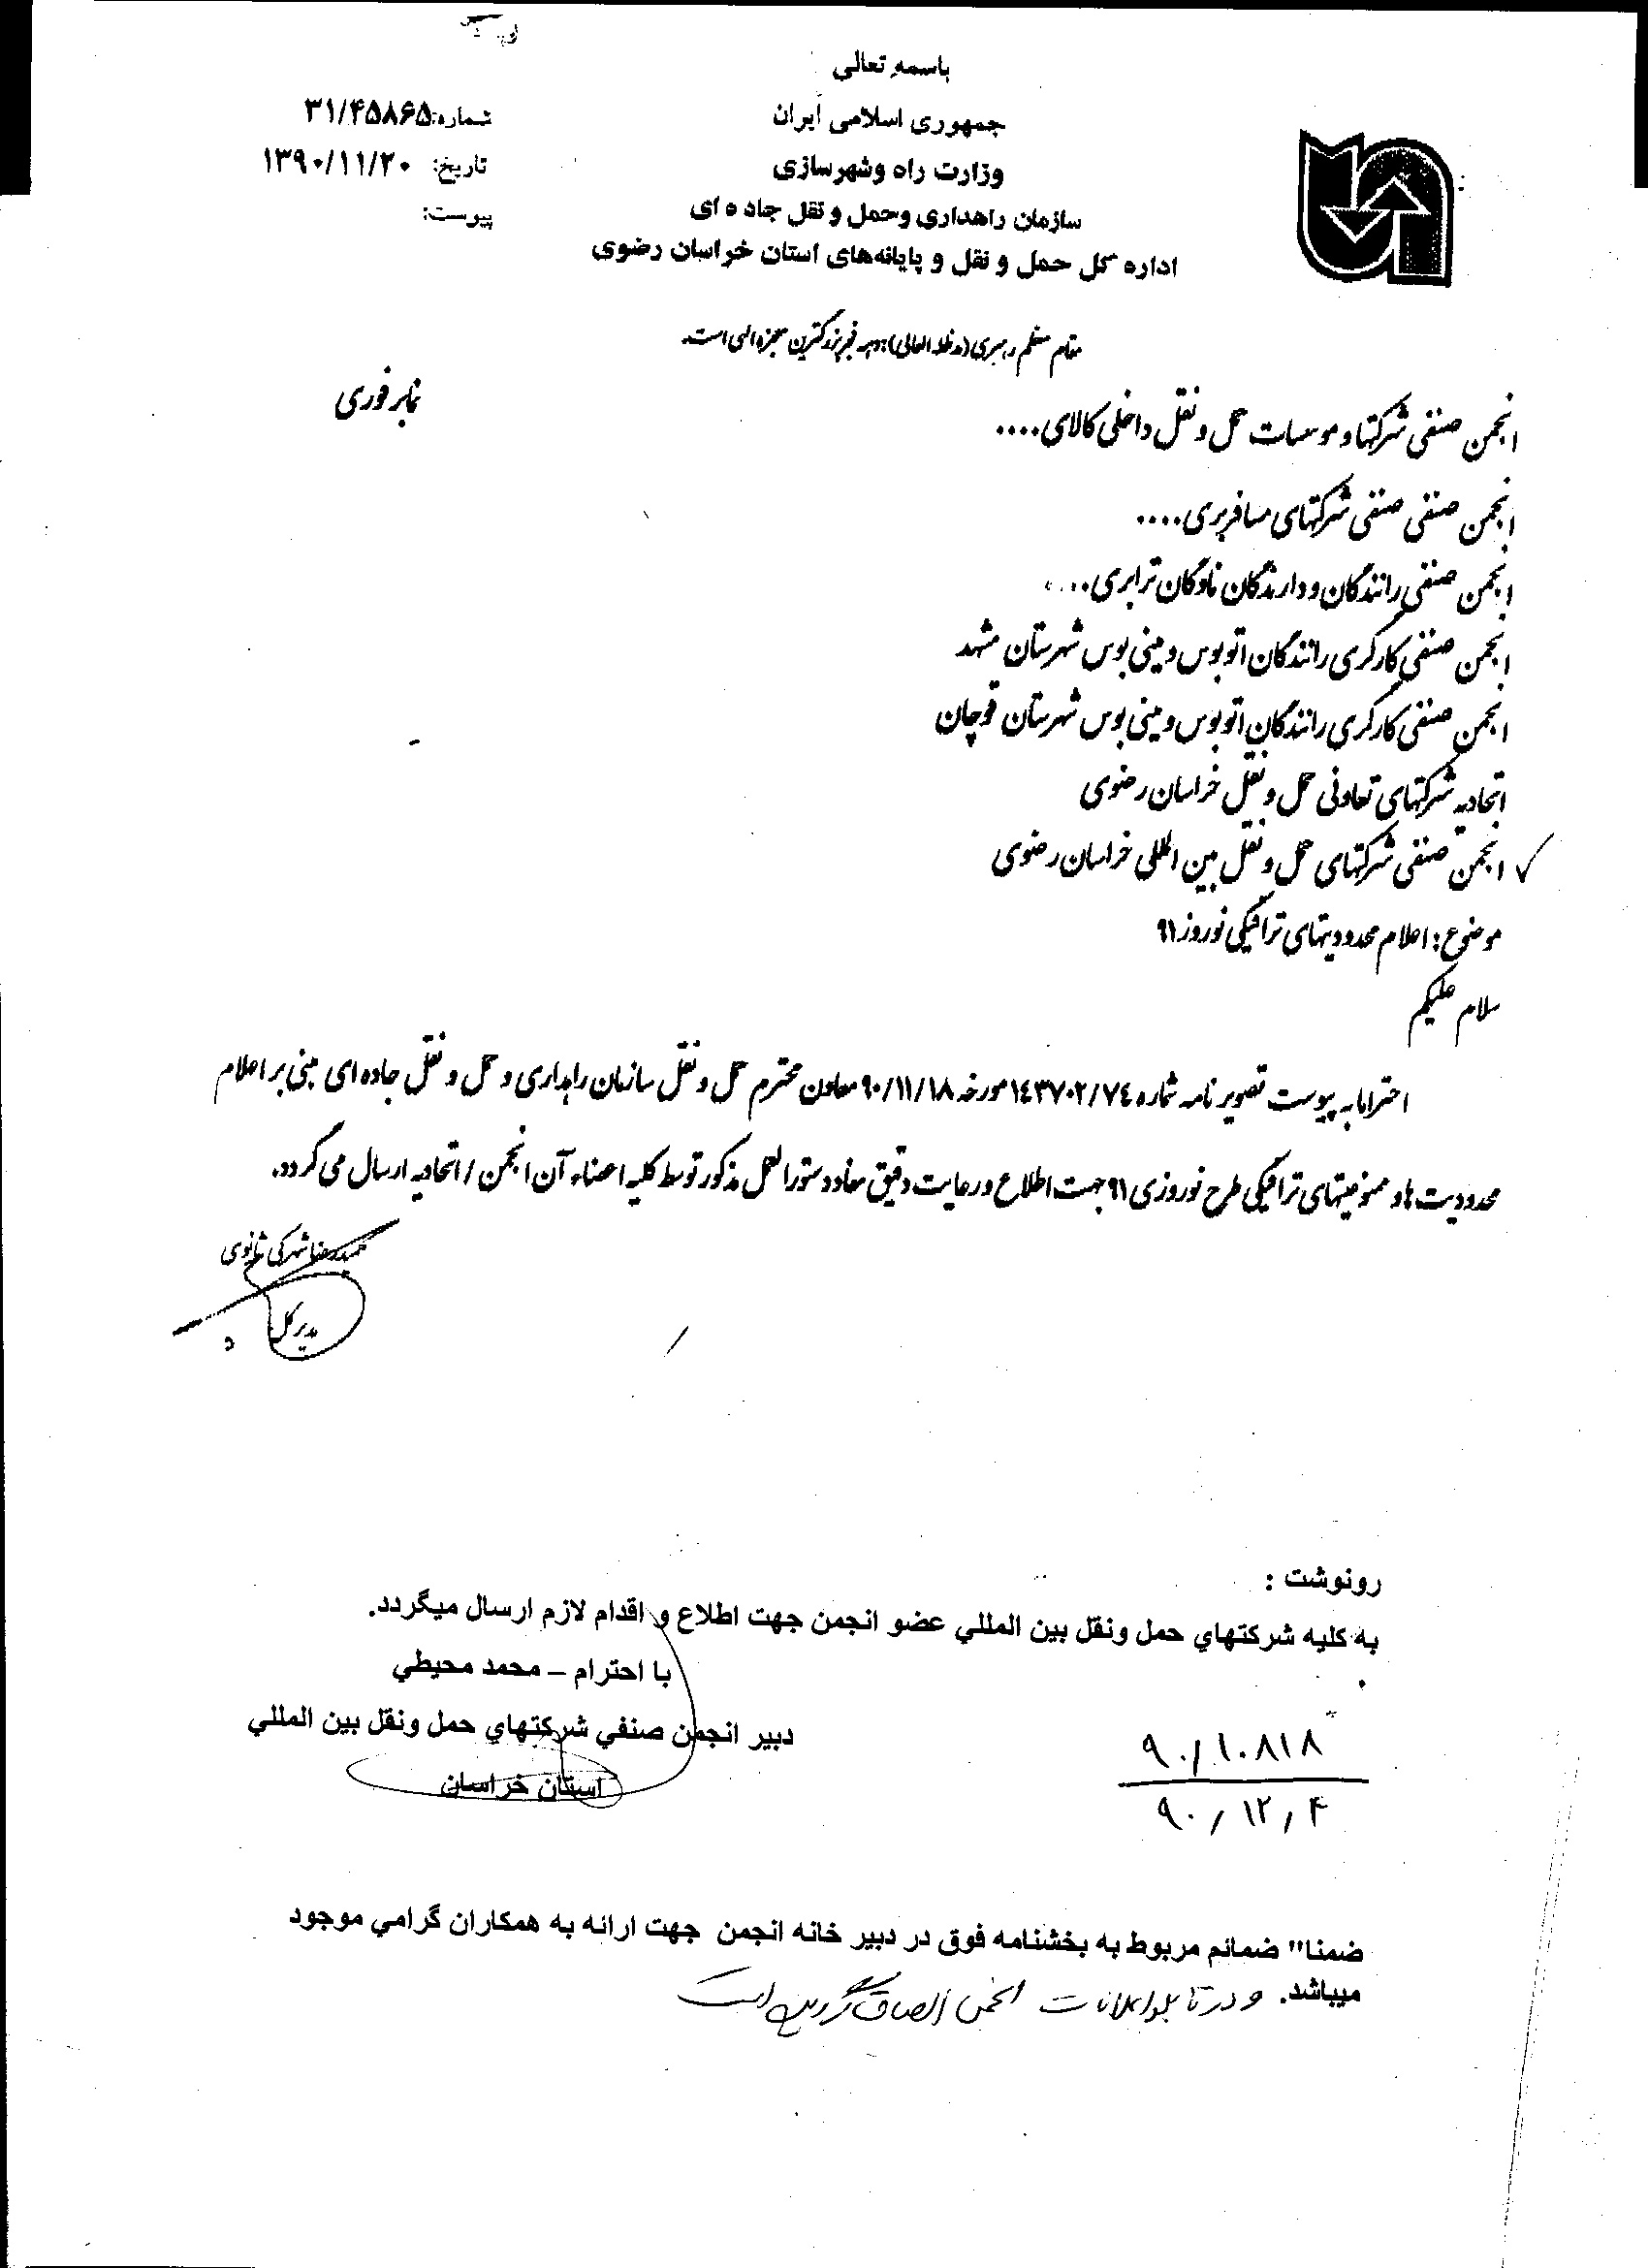 باسمه تعالی
جمهوری اسلامی ایران
وزارت راه وشهرسازی
سازمان راهداری وحمل و نقل جاده ای
اداره کل حمل و نقل و پایانه‌های استان خراسان رضوی
شماره: ۳۱/۴۵۸۶۵
تاریخ: ۱۳۹۰/۱۱/۲۰
پیوست:
مقام معظم رهبری (مدظله العالی): دهه فجر بزرگترین معجزه الهی است.
نمابر فوری
انجمن صنفی شرکتها و موسسات حمل و نقل داخلی کالای....
انجمن صنفی صنفی شرکتهای مسافربری....
انجمن صنفی رانندگان و دارندگان ناوگان ترابری....
انجمن صنفی کارگری رانندگان اتوبوس و مینی بوس شهرستان مشهد
انجمن صنفی کارگری رانندگان اتوبوس و مینی بوس شهرستان قوچان
اتحادیه شرکتهای تعاونی حمل و نقل خراسان رضوی
✓ انجمن صنفی شرکتهای حمل و نقل بین المللی خراسان رضوی
موضوع: اعلام محدودیتهای ترافیکی نوروز ۹۱
سلام علیکم
احتراما به پیوست تصویر نامه شماره ۱۴۳۷۰۲/۷۴ مورخه ۹۰/۱۱/۱۸ معاون محترم حمل و نقل سازمان راهداری و حمل و نقل جاده ای مبنی بر اعلام
محدودیت ها و ممنوعیتهای ترافیکی طرح نوروزی ۹۱ جهت اطلاع و رعایت دقیق مفاد دستورالعمل مذکور توسط کلیه اعضاء آن انجمن / اتحادیه ارسال می گردد.
حمیدرضا شهرکی ثانوی
مدیر کل
رونوشت :
به کلیه شرکتهاي حمل ونقل بین المللي عضو انجمن جهت اطلاع و اقدام لازم ارسال میگردد.
با احترام – محمد محیطي
دبیر انجمن صنفي شرکتهاي حمل ونقل بین المللي
استان خراسان
۹۰/۱۰۸۱۸
۹۰/۱۲/۴
ضمنا" ضمائم مربوط به بخشنامه فوق در دبیر خانه انجمن جهت ارائه به همکاران گرامي موجود
میباشد. و در تابلو اعلانات انجمن الصاق گردیده است